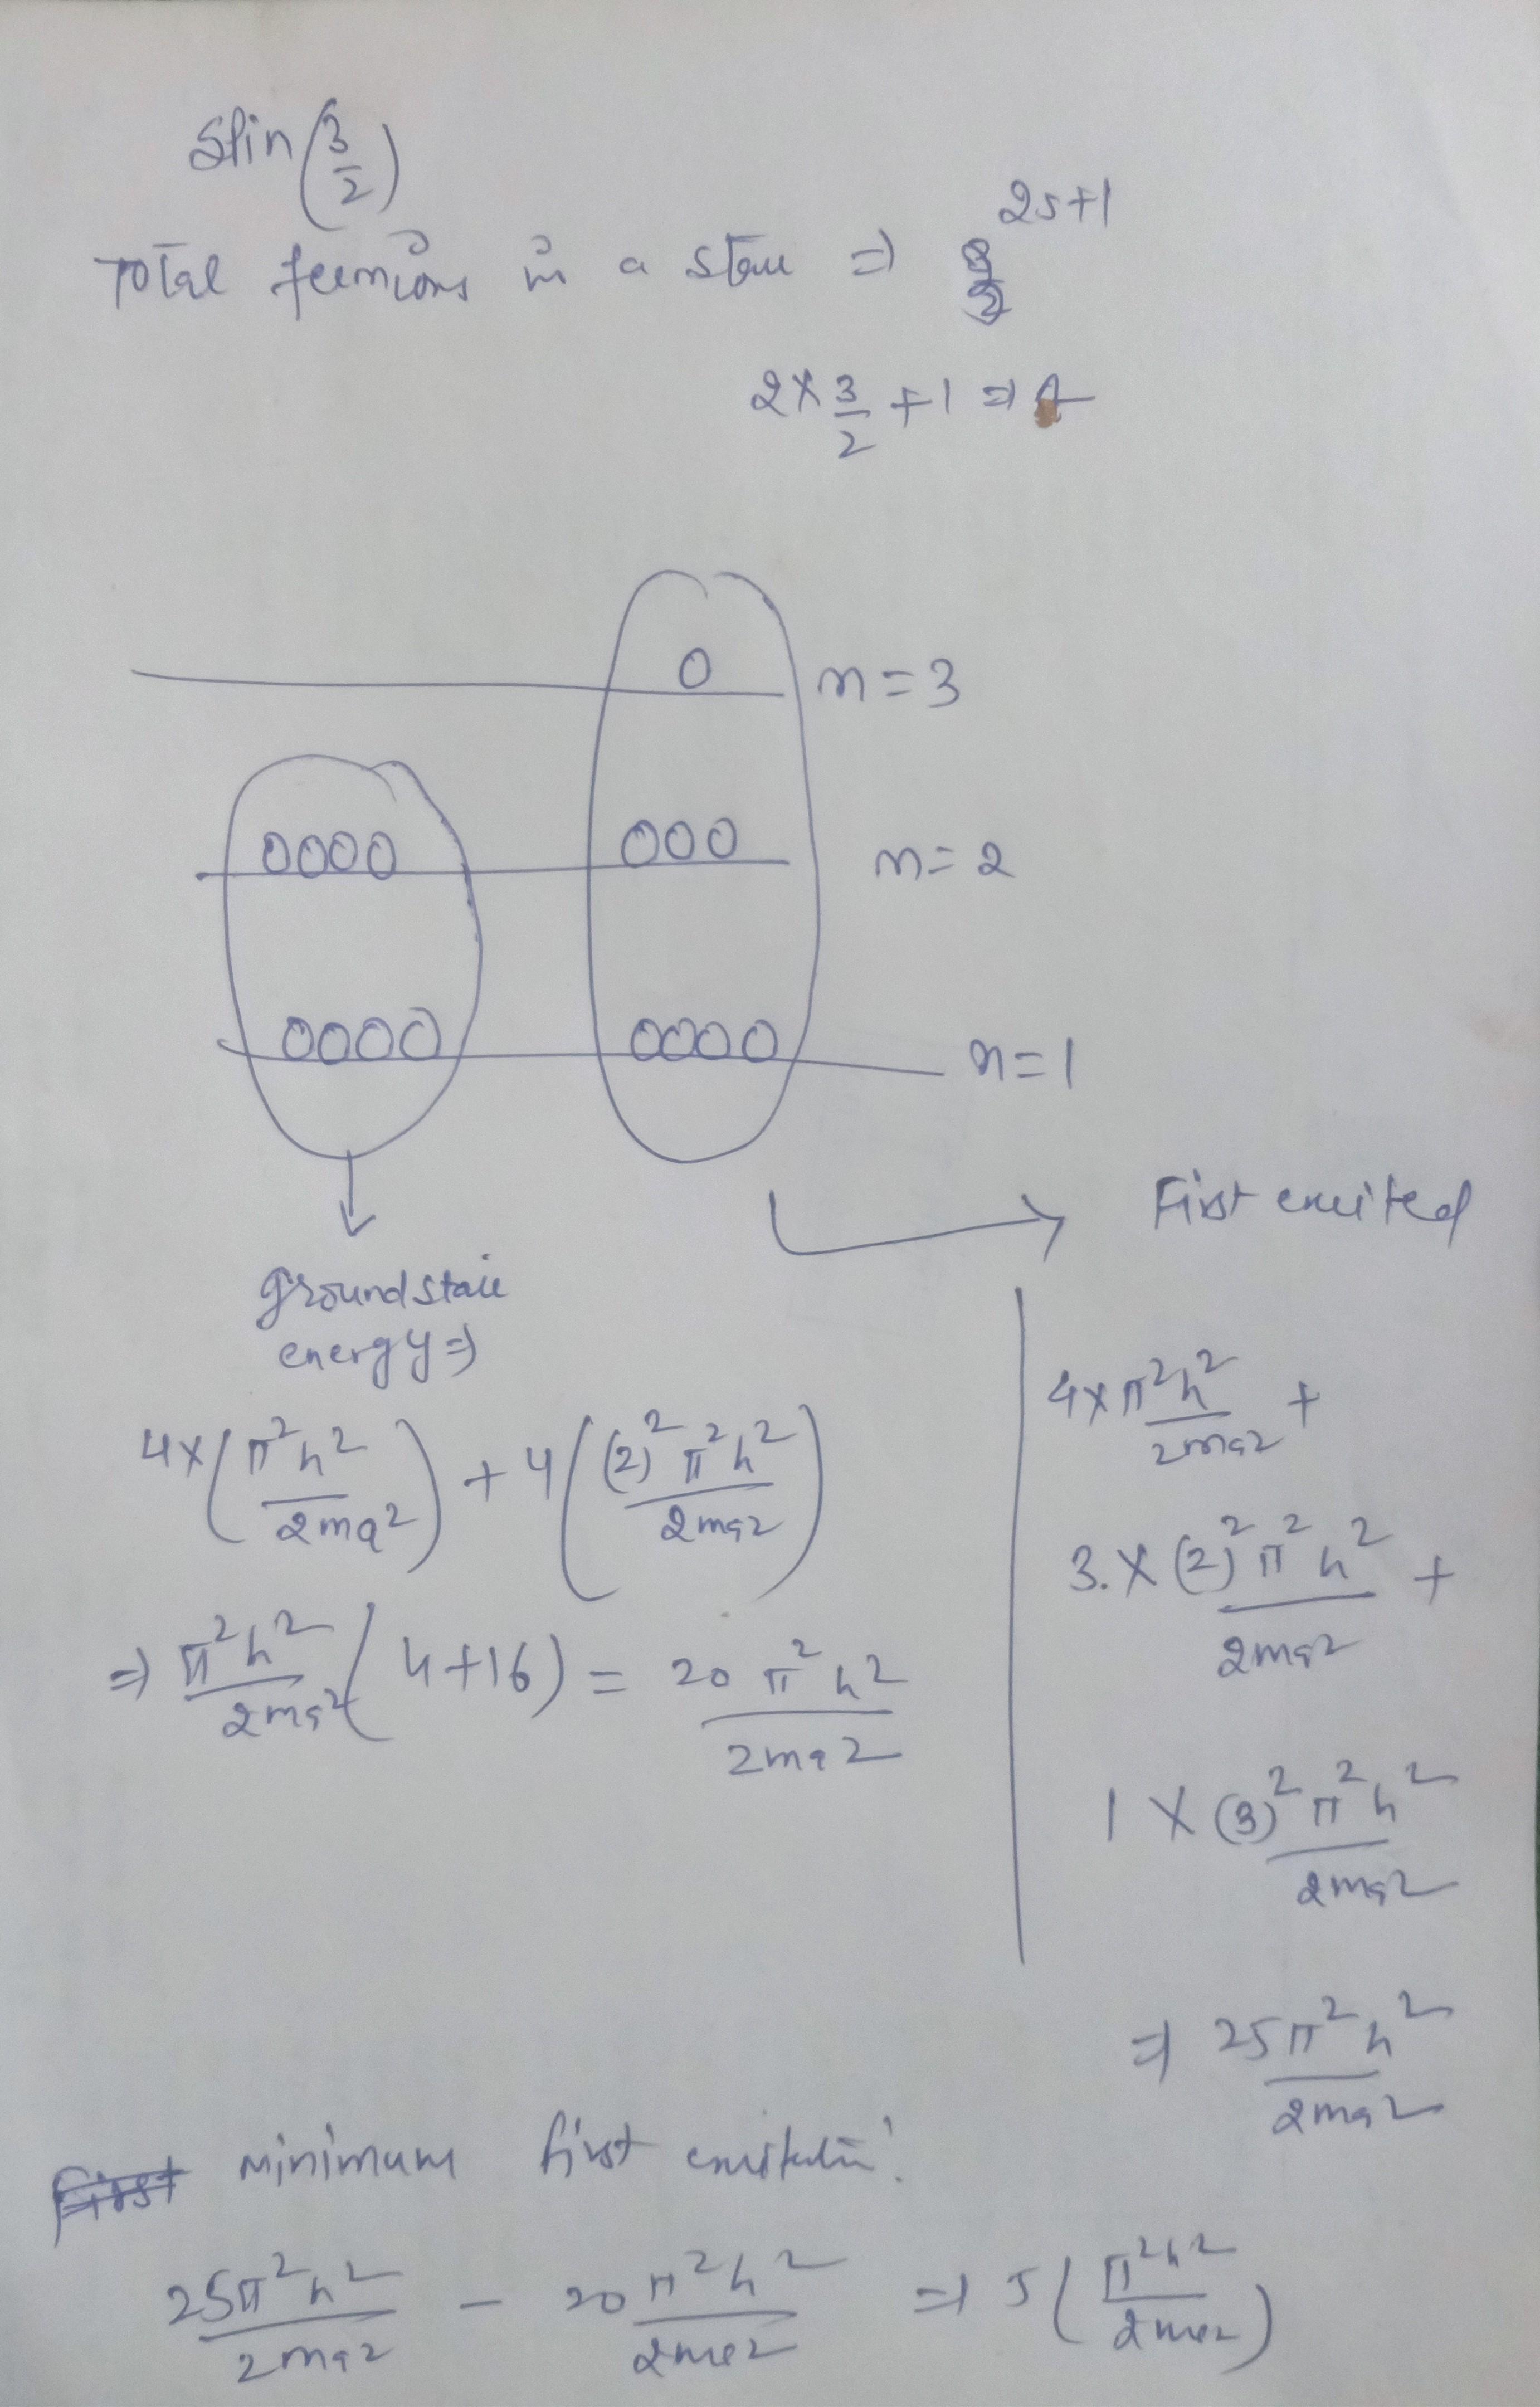 Spin (3/2)
Total fermions in a state ⇒ 2s+1
2 × 3/2 + 1 ⇒ 4
n = 3
n = 2
n = 1
First excited
ground state
energy ⇒
4 × (π²ħ²/2ma²) + 4 ((2)²π²ħ²/2ma²)
⇒ π²ħ²/2ma² (4+16) = 20 π²ħ²/2ma²
4 × π²ħ²/2ma² +
3. × (2)²π²ħ²/2ma² +
1 × (3)²π²ħ²/2ma²
⇒ 25π²ħ²/2ma²
First minimum first excitation:
25π²ħ²/2ma² − 20π²ħ²/2ma² ⇒ 5 (π²ħ²/2ma²)